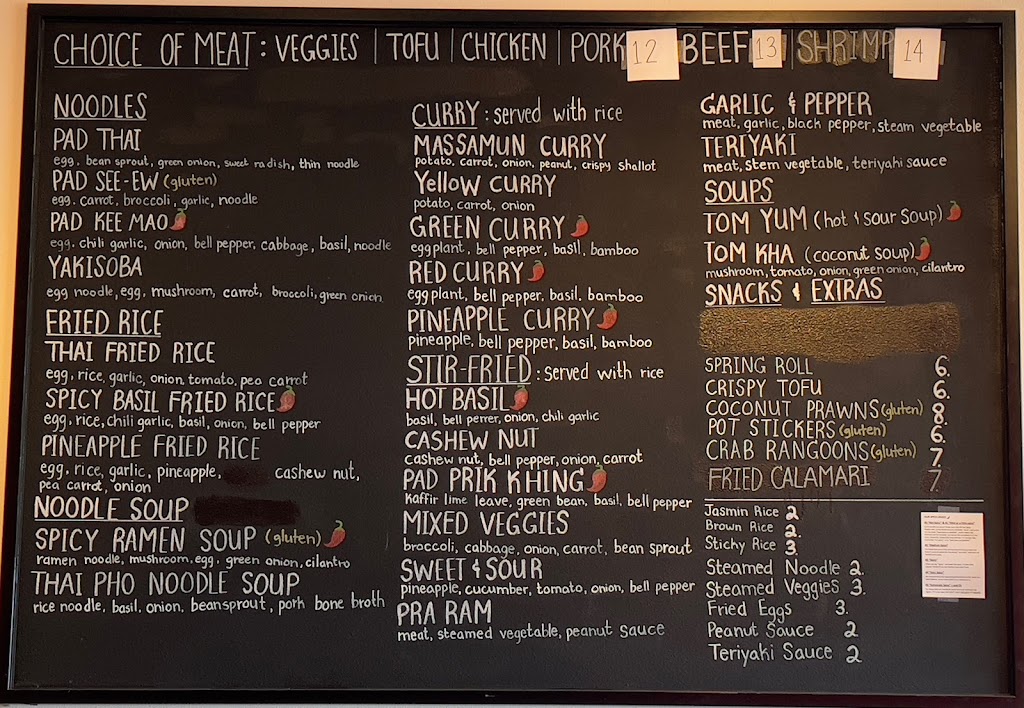 CHOICE OF MEAT: VEGGIES | TOFU | CHICKEN | PORK 12 BEEF 13 | SHRIMP 14
NOODLES
PAD THAI
egg. bean sprout, green onion, sweet radish, thin noodle
PAD SEE-EW (gluten)
egg. carrot, broccoli, garlic, noodle
PAD KEE MAO
egg. chili garlic, onion, bell pepper, cabbage, basil, noodle
YAKISOBA
egg noodle, egg, mushroom, carrot, broccoli, green onion
FRIED RICE
THAI FRIED RICE
egg, rice, garlic, onion, tomato, pea carrot
SPICY BASIL FRIED RICE
egg, rice, chili garlic, basil, onion, bell pepper
PINEAPPLE FRIED RICE
egg, rice, garlic, pineapple, cashew nut,
pea carrot, onion
NOODLE SOUP
SPICY RAMEN SOUP (gluten)
ramen noodle, mushroom, egg, green onion, cilantro
THAI PHO NOODLE SOUP
rice noodle, basil, onion, beansprout, pork bone broth
CURRY: served with rice
MASSAMUN CURRY
potato, carrot, onion, peanut, crispy shallot
YelloW CURRY
potato, carrot, onion
GREEN CURRY
eggplant, bell pepper, basil, bamboo
RED CURRY
eggplant, bell pepper, basil, bamboo
PINEAPPLE CURRY
pineapple, bell pepper, basil, bamboo
STIR-FRIED: served with rice
HOT BASIL
basil, bell perrer, onion, chili garlic
CASHEW NUT
cashew nut, bell pepper, onion, carrot
PAD PRIK KHING
Kaffir lime leave, green bean, basil, bell pepper
MIXED VEGGIES
broccoli, cabbage, onion, carrot, bean sprout
SWEET & SOUR
pineapple, cucumber, tomato, onion, bell pepper
PRA RAM
meat, steamed vegetable, peanut sauce
GARLIC & PEPPER
meat, garlic, black pepper, steam vegetable
TERIYAKI
meat, stem vegetable, teriyaki sauce
SOUPS
TOM YUM (hot & sour soup)
TOM KHA (coconut soup)
mushroom, tomato, onion, green onion, cilantro
SNACKS & EXTRAS
SPRING ROLL 6.
CRISPY TOFU 6.
COCONUT PRAWNS (gluten) 8.
POT STICKERS (gluten) 6.
CRAB RANGOONS (gluten) 7.
FRIED CALAMARI 7.
Jasmin Rice 2
Brown Rice 2.
Stichy Rice 3
Steamed Noodle 2
Steamed Veggies 3
Fried Eggs 3.
Peanut Sauce 2
Teriyaki Sauce 2